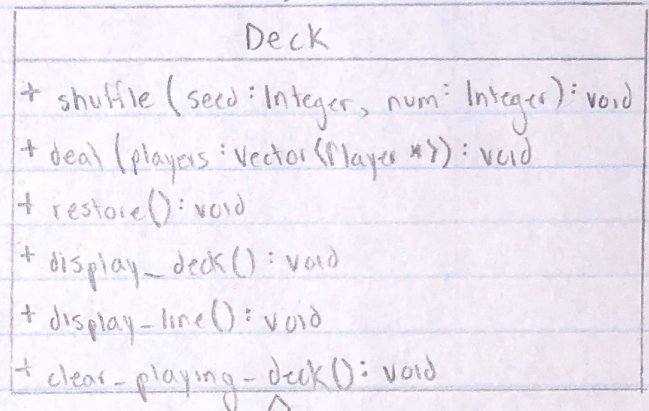 Deck
+ shuffle (seed : Integer, num : Integer) : void
+ deal (players : Vector<Player *>) : void
+ restore() : void
+ display_deck() : void
+ display_line() : void
+ clear_playing_deck() : void